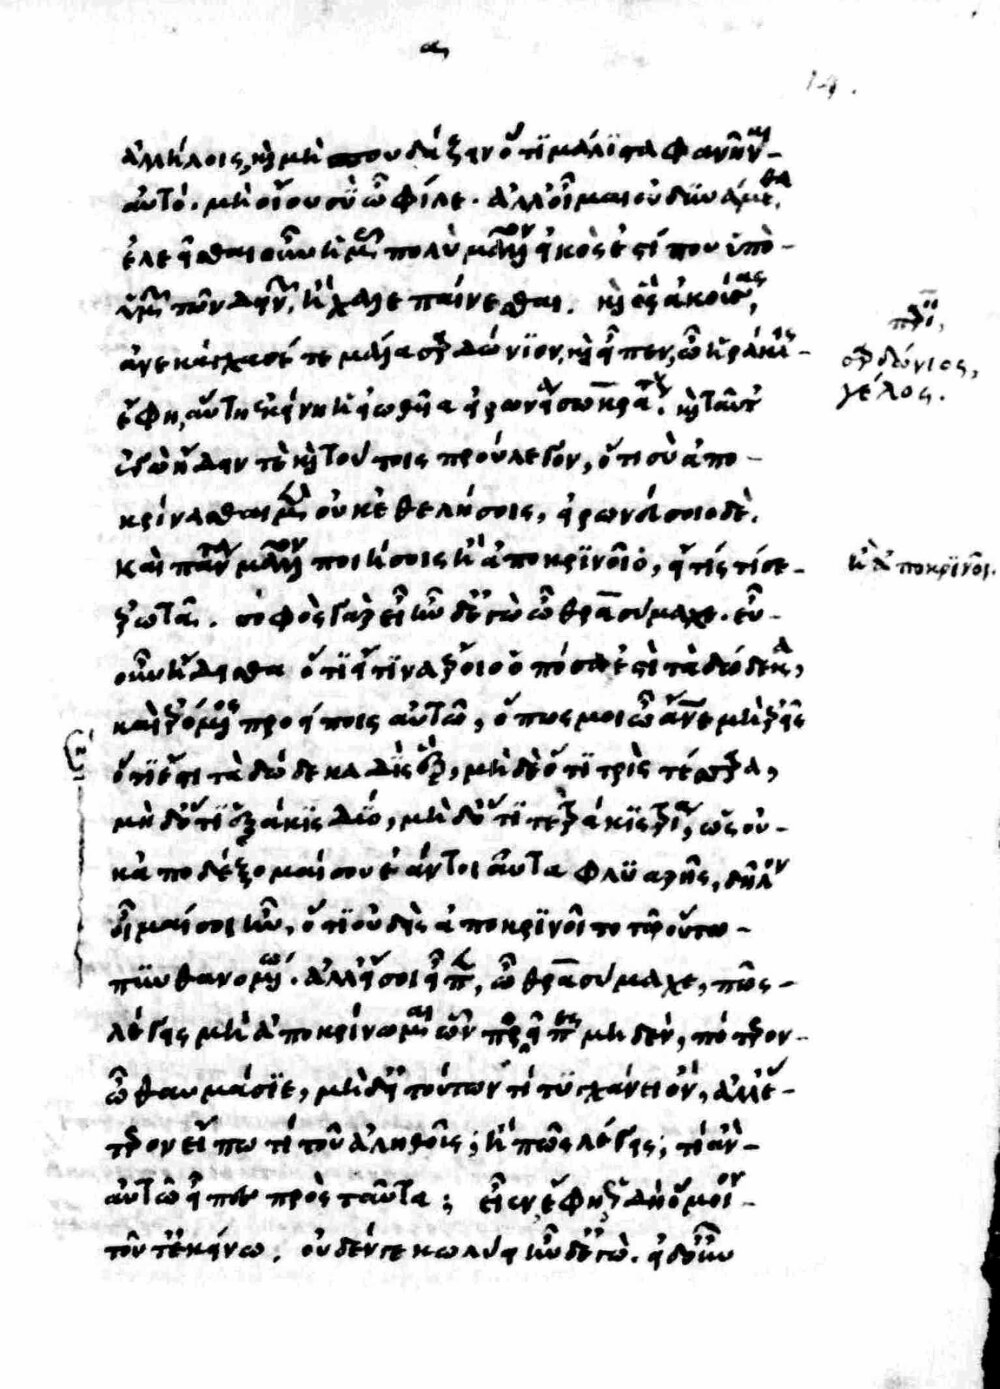 α
14.
ἀλλήλοις, καὶ μὴ σπουδάζειν ὅτι μάλιστα φανῆναι
αὐτό. μὴ οἴου σὺ ὦ φίλε. ἀλλ' οἶμαι οὐ δυνάμεθα,
ἐλεεῖσθαι οὖν ἡμᾶς πολὺ μᾶλλον εἰκός ἐστί που ὑπὸ
ὑμῶν τῶν δεινῶν, ἢ χαλεπαίνεσθαι. καὶ ὃς ἀκούσας,
ἀνεκάγχασέ τε μάλα σαρδώνιον, καὶ εἶπεν, ὦ ἡράκλεις
ἔφη, αὕτη ἐκείνη ἡ εἰωθυῖα εἰρωνεία σωκράτους. καὶ ταῦτ'
ἐγὼ ᾔδειν τὲ καὶ τούτοις προὔλεγον, ὅτι σὺ ἀπο-
κρίνασθαι μὲν οὐκ ἐθελήσοις, εἰρωνεύσοιο δὲ.
καὶ πάντα μᾶλλον ποιήσοις ἢ ἀποκρινοῖο, εἴ τίς τί σε
ἐρωτᾷ. σοφὸς γὰρ εἶ ἦν δ' ἐγὼ ὦ θρασύμαχε. εὖ
οὖν ᾔδεισθα ὅτι εἴ τινα ἔροιο ὁπόσα ἐστὶ τὰ δώδεκα,
καὶ ἐρόμενος προείποις αὐτῷ, ὅπως μοι ὦ ἄνθρωπε μὴ ἐρεῖς
ὅτι ἔστι τὰ δώδεκα δὶς ἕξ, μὴ δὲ ὅτι τρὶς τέσσαρα,
μὴ δ' ὅτι ἑξάκις δύο, μὴ δ' ὅτι τετράκις τρία, ὡς οὐ-
κ ἀποδέξομαί σου ἐάν τοιαῦτα φλυαρῇς, δῆλον
οἶμαί σοι ἦν, ὅτι οὐδεὶς ἀποκρινοῖτο τῷ οὕτω
πυνθανομένῳ. ἀλλ' εἴ σοι εἶπεν, ὦ θρασύμαχε, πῶς
λέγεις μὴ ἀποκρίνωμαι ὧν προεῖπες μηδέν, πότερον
ὦ θαυμάσιε, μὴ δ' εἰ τούτων τί τυγχάνει ὄν, ἀλλ' ἕ-
τερον εἴπω τί τοῦ ἀληθοῦς; ἢ πῶς λέγεις; τί ἂν
αὐτῷ εἶπες πρὸς ταῦτα; εἶεν ἔφη ὡς δὴ ὅμοιον
τοῦτ' ἐκείνῳ. οὐδέν γε κωλύει ἦν δ' ἐγὼ. εἰ δ' οὖν
σαρδώνιος
γέλως.
ἢ ἀποκρινοῖ.